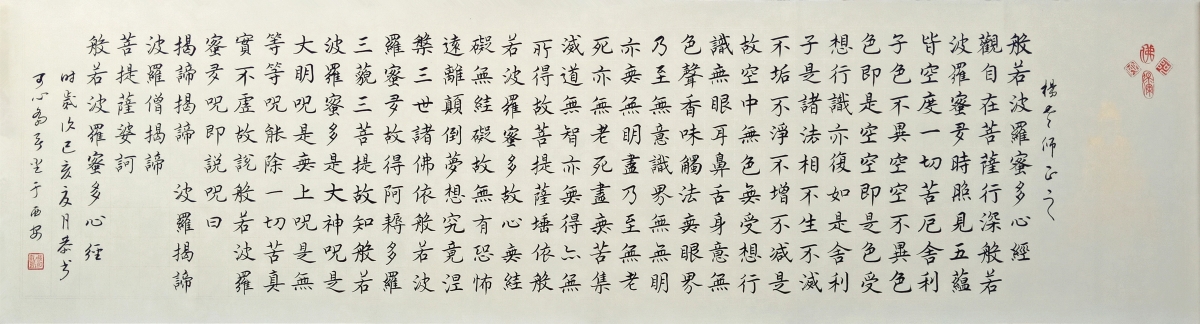 楊老師正之
般若波羅蜜多心經
觀自在菩薩行深般若
波羅蜜多時照見五蘊
皆空度一切苦厄舍利
子色不異空空不異色
色即是空空即是色受
想行識亦復如是舍利
子是諸法相不生不滅
不垢不淨不增不減是
故空中無色無受想行
識無眼耳鼻舌身意無
色聲香味觸法無眼界
乃至無意識界無無明
亦無無明盡乃至無老
死亦無老死盡無苦集
滅道無智亦無得以無
所得故菩提薩埵依般
若波羅蜜多故心無絓
礙無絓礙故無有恐怖
遠離顛倒夢想究竟涅
槃三世諸佛依般若波
羅蜜多故得阿耨多羅
三藐三菩提故知般若
波羅蜜多是大神呪是
大明呪是無上呪是無
等等呪能除一切苦真
實不虛故說般若波羅
蜜多呪即說呪曰
揭諦揭諦 波羅揭諦
波羅僧揭諦
菩提薩婆訶
般若波羅蜜多心經
時歲次己亥亥月恭書
可心齋 坐于西安